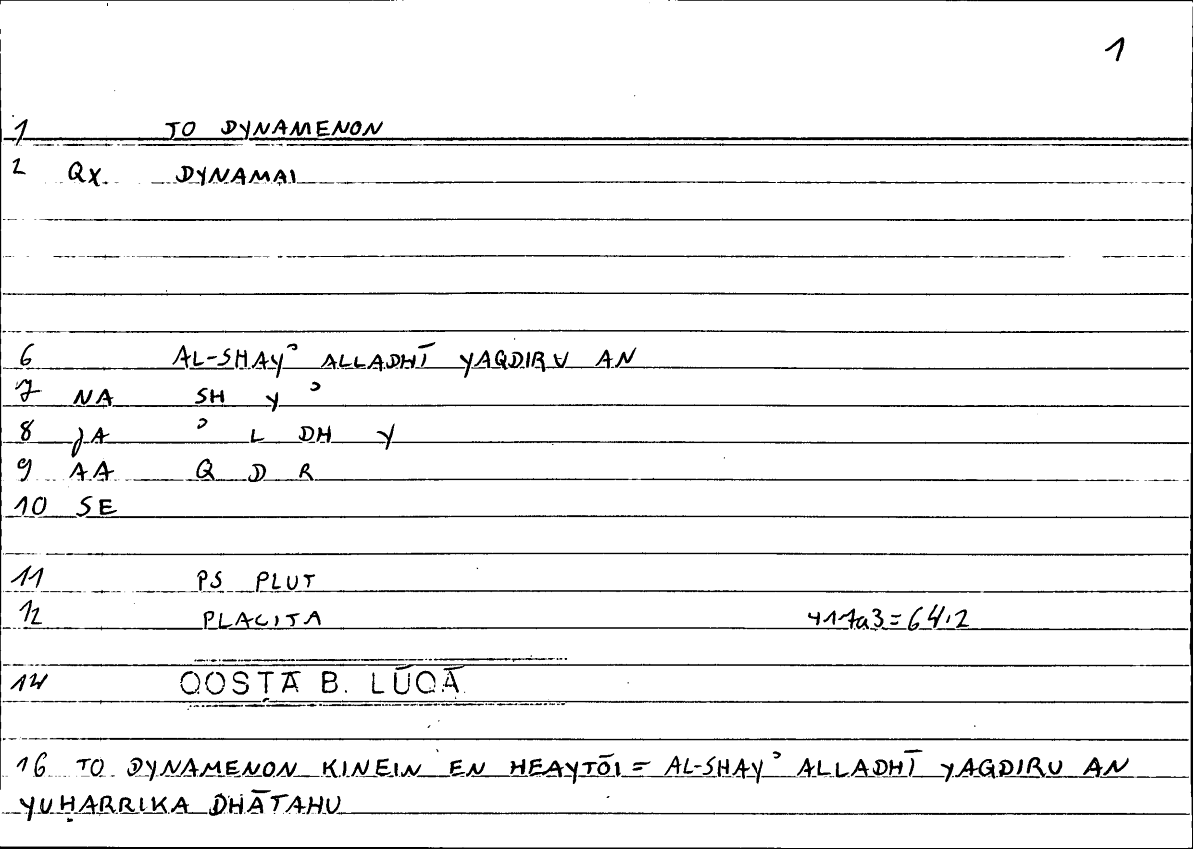 1
1 TO DYNAMENON
2 QX DYNAMAI
6 AL-SHAYʾ ALLADHĪ YAQDIRU AN
7 NA SH Y ʾ
8 JA ʾ L DH Y
9 AA Q D R
10 SE
11 PS PLUT
12 PLACITA 411a3=64.2
14 QOSṬĀ B. LŪQĀ
16 TO DYNAMENON KINEIN EN HEAYTŌI = AL-SHAYʾ ALLADHĪ YAQDIRU AN
YUḤARRIKA DHĀTAHU